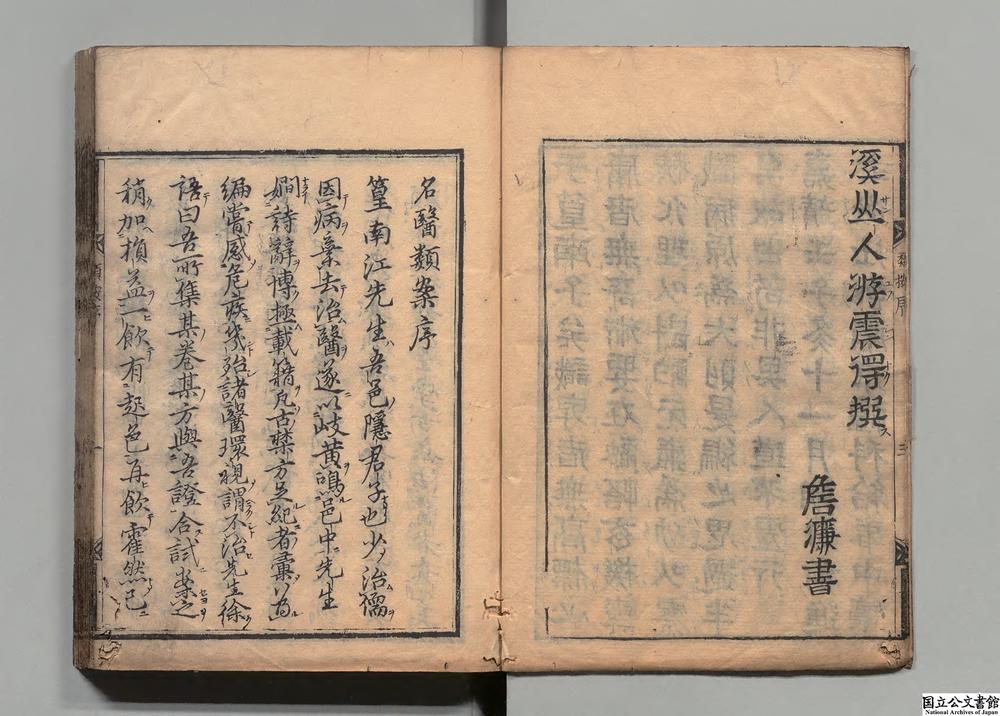 溪山人游震得撰
詹濂書
名醫類案序
篁南江先生吾邑隱君子也少治儒
因病棄去治醫遂以岐黄鳴邑中先生
嫺詩辭博極載籍凡古禁方足紀者彙爲
編嘗感危疾幾殆諸醫環視謂不治先生徐
語曰吾所集某卷某方與吾證合試案之
稍加損益一飲有起色再飲霍然已
國立公文書館
National Archives of Japan